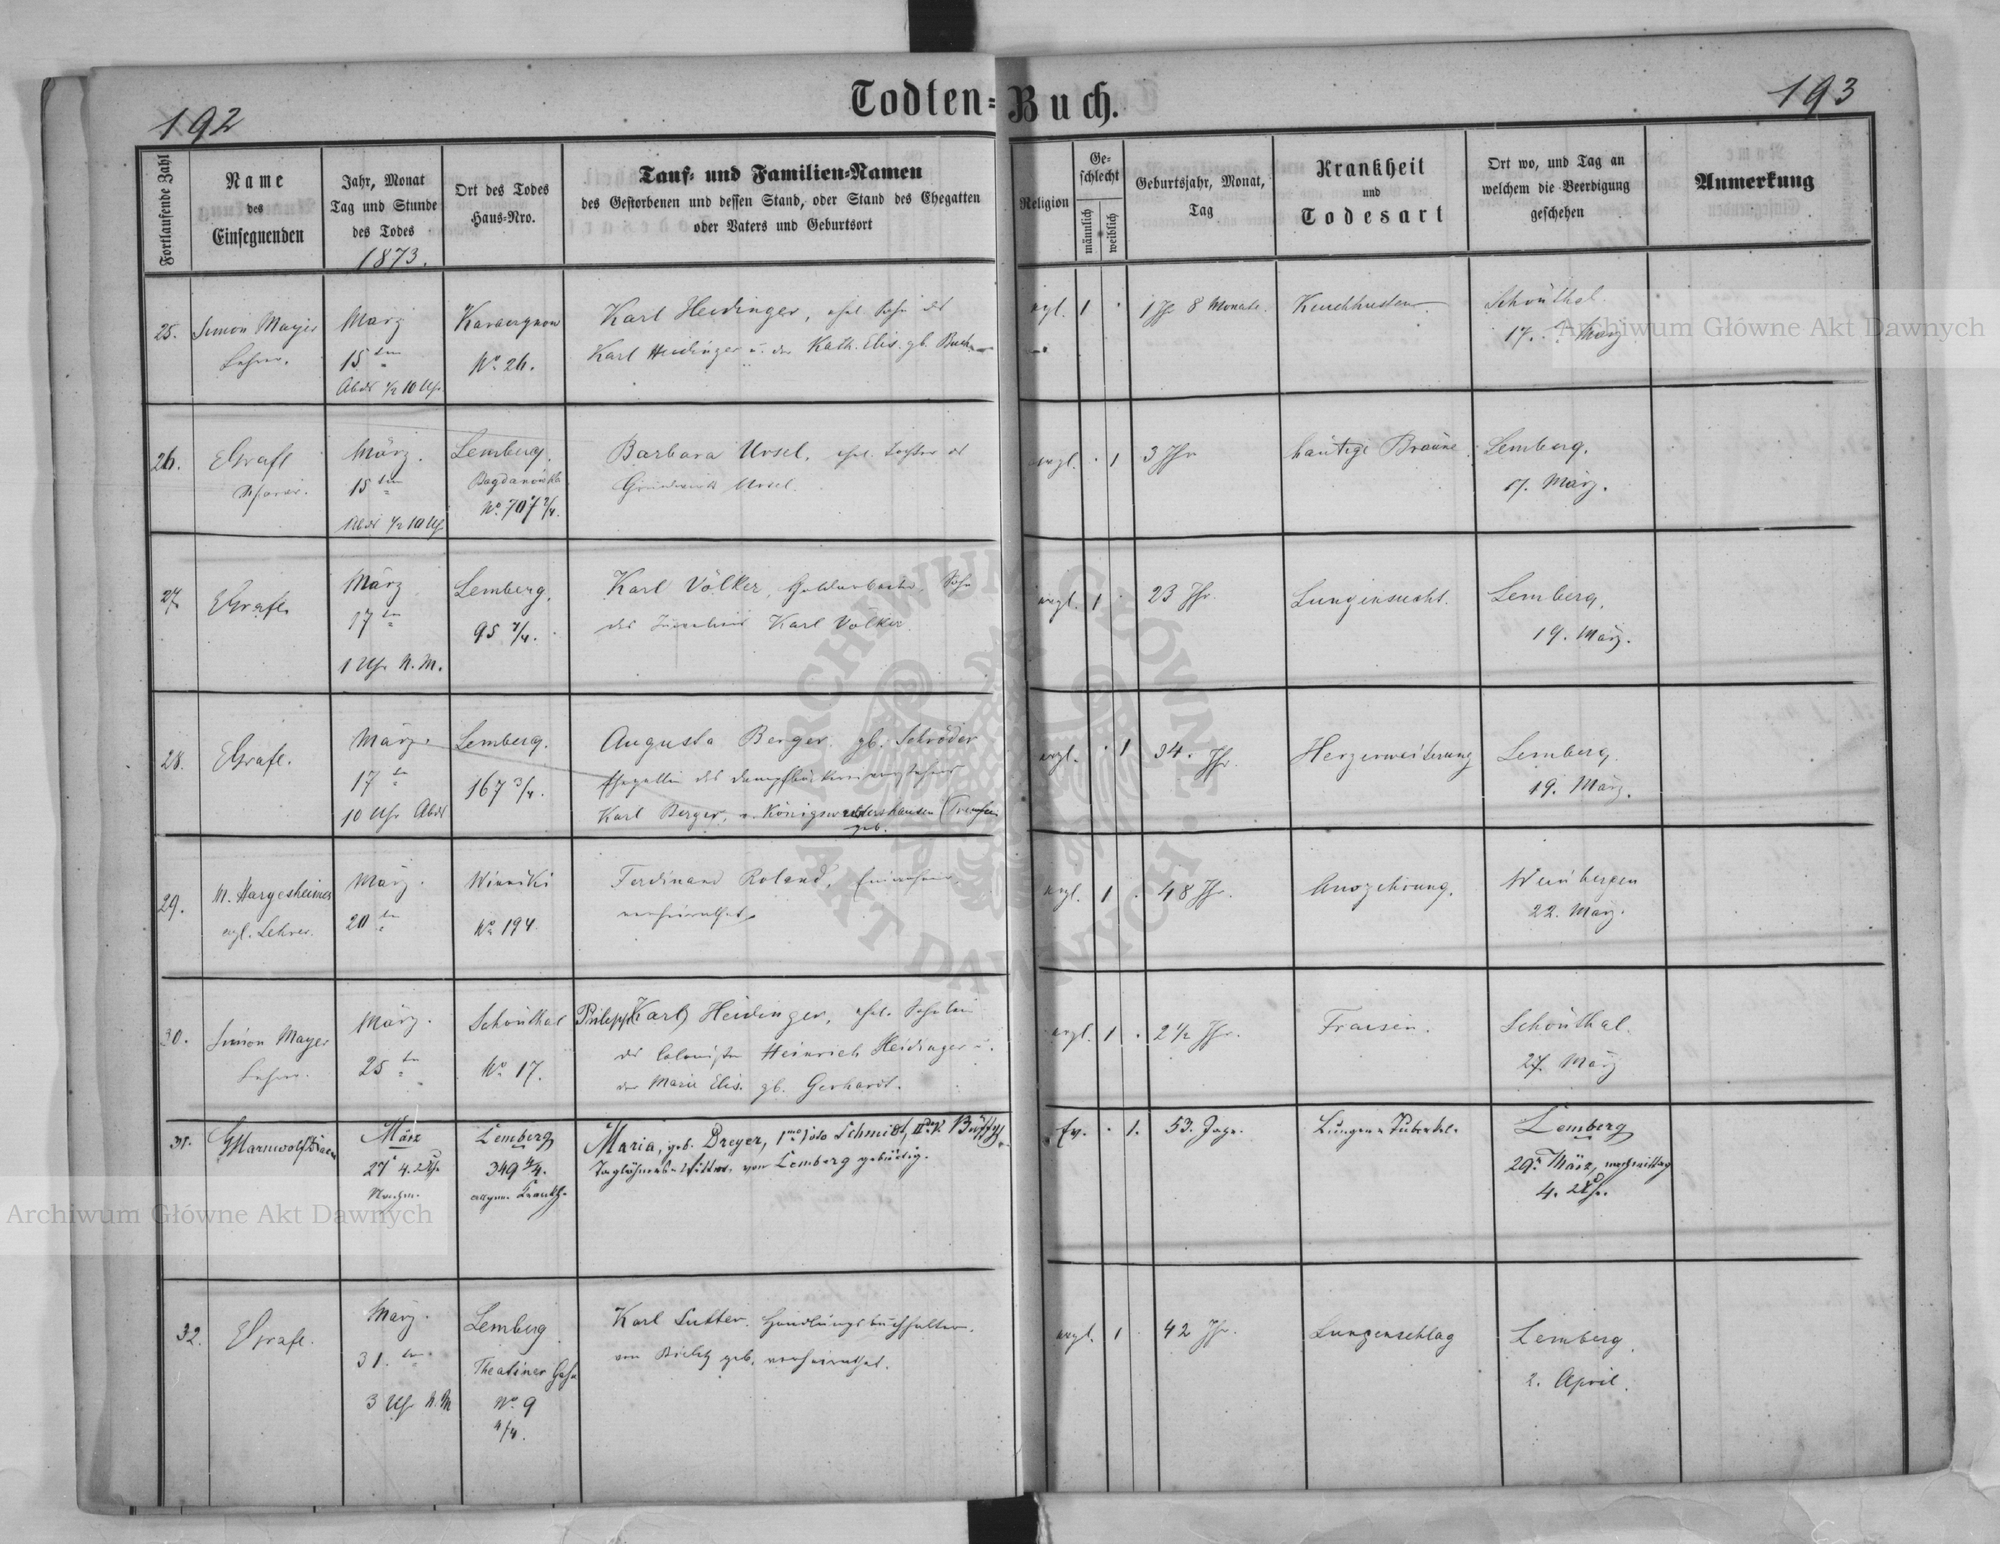 192
Todten-Buch.
193
Fortlaufende Zahl
Name
des
Einsegnenden
Jahr, Monat
Tag und Stunde
des Todes
1873.
Ort des Todes
Haus-Nro.
Tauf- und Familien-Namen
des Gestorbenen und dessen Stand, oder Stand des Ehegatten
oder Vaters und Geburtsort
Religion
Ge-
schlecht
männlich
weiblich
Geburtsjahr, Monat,
Tag
Krankheit
und
Todesart
Ort wo, und Tag an
welchem die Beerdigung
geschehen
Anmerkung
25.
Simon Mayer
Lehrer.
März
15ten
Abds ½ 10 Uhr
No. 26.
Karl Heidinger, ehel. Sohn des
Karl Heidinger u. der Kath. Elis. gb.
evgl.
1
1 Jhr 8 Monate.
Keuchhusten
Schönthal.
17. März
26.
EGrafl
Pfarrer.
März.
15ten
Abds ½ 10 Uhr
Lemberg.
Bogdanówka
No. 707 2/4.
Barbara Ursel, ehel. Tochter des
Ursel.
evgl.
1
3 Jhr
häutige Bräune.
Lemberg.
17. März.
27.
EGrafl.
März
17ten
1 Uhr N. M.
Lemberg.
95 2/4.
Karl Völker, Sohn
des Karl Völker
evgl.
1
23 Jhr.
Lungensucht.
Lemberg.
19. März.
28.
EGrafl.
März.
17ten
10 Uhr Abds
Lemberg.
167 3/4.
Augusta Berger gb. Schröder
Ehegattin des
Karl Berger, Königswustershausen
geb.
evgl.
1
34. Jhr.
Herzerweiterung
Lemberg.
19. März.
29.
M. Hargesheimer
evgl. Lehrer.
März.
20ten
Winniki
No 194.
Ferdinand Roland,
verheirathet.
evgl.
1
48 Jhr.
Auszehrung.
Weinbergen
22. März.
30.
Simon Mayer
Lehrer.
März.
25ten
Schönthal
No 17.
Philipp Karl Heidinger, ehel. Söhnlein
des Colonisten Heinrich Heidinger u.
der Marie Elis. gb. Gerhardt.
evgl.
1
2½ Jhr.
Fraisen.
Schönthal.
27. März
31.
März
27. 4. Uhr
Nachm.
Lemberg
349 4/4.
allgem. Krankh.
Maria, geb. Dreyer, 1mo voto Schmidt,
Taglöhners-Wittwe, von Lemberg gebürtig.
Ev.
1.
53. Jahr.
Lungen-Tuberkel.
Lemberg
29. März, nachmittag
4. Uhr.
32.
EGrafl.
März.
31.ten
3 Uhr N. M
Lemberg
Theatiner Gasse
No. 9
4/4.
Karl Sutter. Handlungsbuchhalter.
von Bielitz geb. verheirathet.
evgl.
1
42 Jhr.
Lungenschlag
Lemberg.
2. April.
Archiwum Główne Akt Dawnych
Archiwum Główne Akt Dawnych
ARCHIWUM GŁÓWNE AKT DAWNYCH